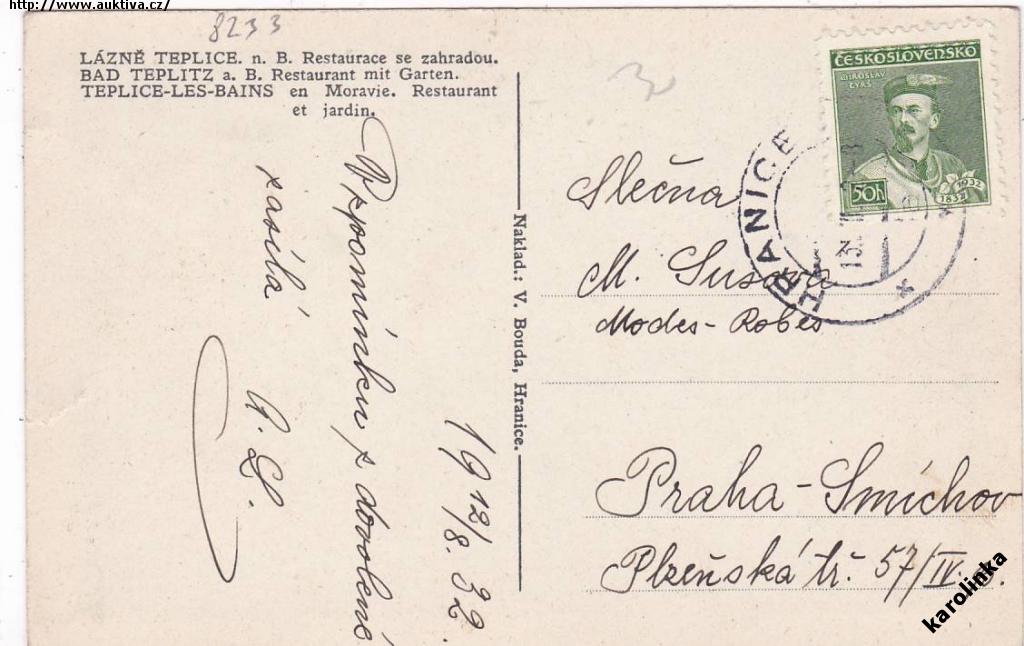 http://www.auktiva.cz/
8233
LÁZNĚ TEPLICE. n. B. Restaurace se zahradou.
BAD TEPLITZ a. B. Restaurant mit Garten.
TEPLICE-LES-BAINS en Moravie. Restaurant
et jardin.
19 12/8. 32.
Vzpomínku z dovolené
zasílá
A. L.
Naklad.: V. Bouda, Hranice.
30
ČESKOSLOVENSKO
MIROSLAV
TYRŠ
50h
1832
1932
HRANICE
Slečna
M. Susova
Modes-Robes
Praha-Smíchov
Plzeňská tř. 57/IV. p.
karolinka